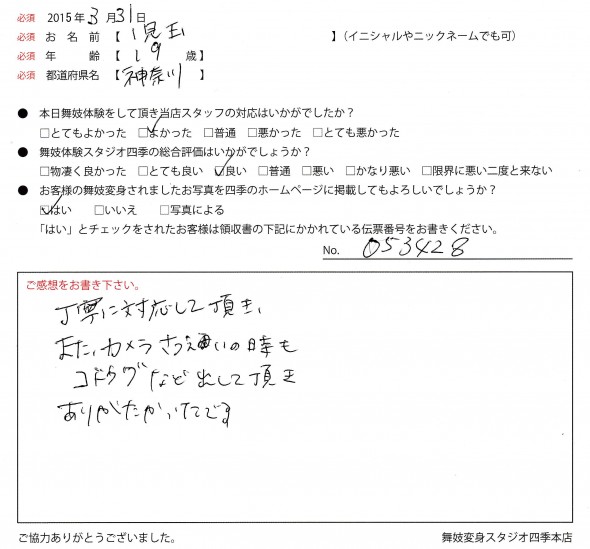 必須 2015年3月31日
必須 お名前【児玉】(イニシャルやニックネームでも可)
必須 年齢【19歳】
必須 都道府県名【神奈川】
● 本日舞妓体験をして頂き当店スタッフの対応はいかがでしたか?
□とてもよかった ☑よかった □普通 □悪かった □とても悪かった
● 舞妓体験スタジオ四季の総合評価はいかがでしょうか?
□物凄く良かった □とても良い ☑良い □普通 □悪い □かなり悪い □限界に悪い二度と来ない
● お客様の舞妓変身されましたお写真を四季のホームページに掲載してもよろしいでしょうか?
☑はい □いいえ □写真による
「はい」とチェックをされたお客様は領収書の下記にかかれている伝票番号をお書きください。
No. 053428
ご感想をお書き下さい。
丁寧に対応して頂き、
また、カメラさつえいの時も
コドウグなど出して頂き
ありがたかったです
ご協力ありがとうございました。 舞妓変身スタジオ四季本店